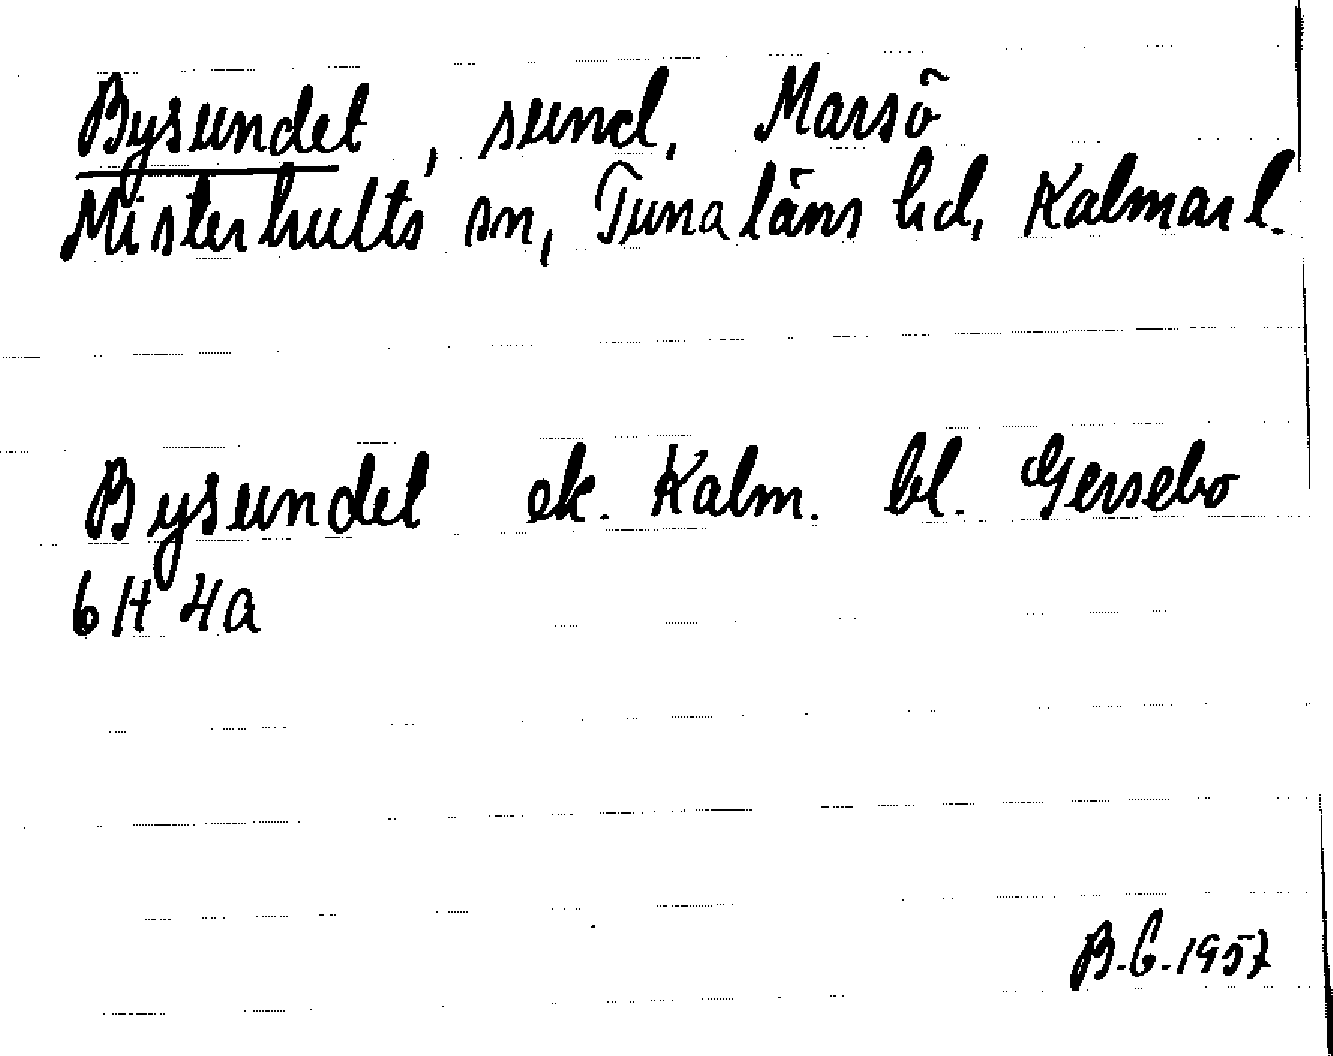 Bysundet, sund, Marsö
Misterhults sn, Tunaläns hd, Kalmar l.
Bysundet ek. Kalm. bl. Gersebo
6H 4a
B.G.1957